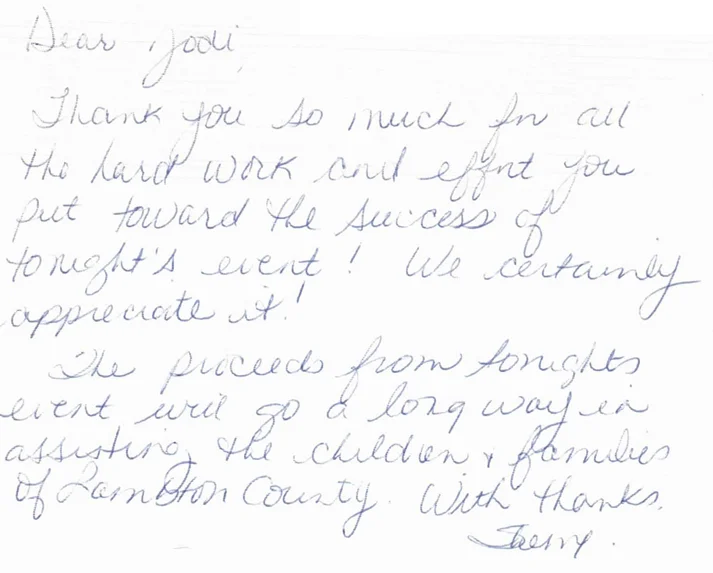 Dear Jodi,
Thank you so much for all
the hard work and effort you
put toward the success of
tonight's event! We certainly
appreciate it!
The proceeds from tonights
event will go a long way in
assisting the children & families
of Lambton County. With thanks.